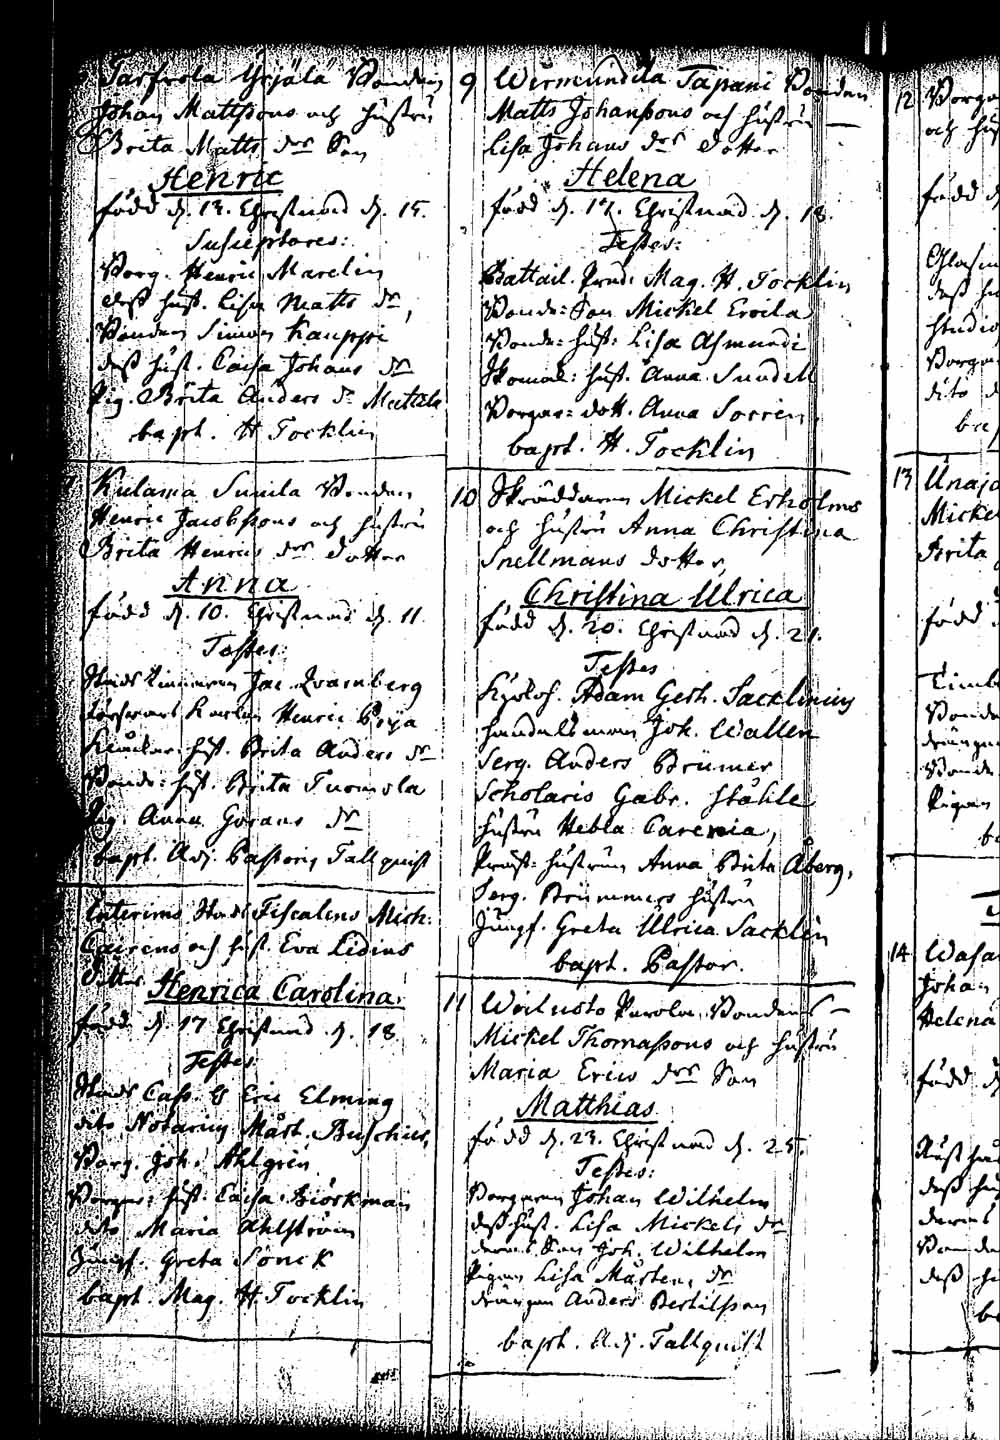 Yrjälä Bonden
Johan Mattssons och hustru
Brita Matts dr Son
Henric
född d. 13. Christnad d. 15.
Susceptores:
Borg. Henric Marelin
dess hust. Lisa Matts dr,
Bonden Simon Kauppi
dess hust. Caisa Johans dr
Pig. Brita Anders dr Mattila
bapt. H Tocklin
Kulama Sunila Bonden
Henric Jacobssons och hustru
Brita Henrics dr dotter
Anna
född d. 10. Christnad d. 11.
Testes:
Jac. Qvarnberg
Karlen Henric Pryja
hust. Brita Anders dr
Bonde: hust. Brita Tuomola
Pig. Anna Görans dr
bapt. Adj. Pastoris Tallquist
Interims Stads Fiscalens Mich:
Cairens och hust. Eva Lidens
dotter Henrica Carolina.
född d. 17 Christnad d. 18.
Testes
Stads Cass. Eric Elming
dito Notarius Mårt. Buschius,
Borg. Joh. Ahlgrén
Borgar: hust: Caisa Biörkman
dito Maria Ahlström
Jungf. Greta Sönck
bapt. Mag. H. Tocklin
9 Wermundila Tapani Bonden
Matts Johanssons och hustru
Lisa Johans dr dotter
Helena
född d. 17. Christnad d. 18.
Testes:
Battail. Pred: Mag. H. Tocklin
Bonde: Son Mickel Eroila
Bonde: hust: Lisa Asmundi
Skomak: hust. Anna Sundell
Borgar: dott. Anna Sorrin
bapt. H. Tocklin
10 Skräddaren Mickel Erholms
och hustru Anna Christina
Snellmans dotter,
Christina Ulrica
född d. 20. Christnad d. 21.
Testes
Adam Gerh. Sacklinius
handelsman Joh. Wallen
Serg. Anders Brümer
Scholaris Gabr. Ståhle
hustru Hebla Carenia,
Prost: hustrun Anna Brita Åberg,
Serg. Brümmers hustru
Jungf. Greta Ulrica Sacklin
bapt. Pastor.
11 Woiluoto Parola Bonden
Mickel Thomassons och hustru
Maria Erics dr Son
Matthias
född d. 23. Christnad d. 25.
Testes:
Borgaren Johan Wilhelm
dess hust. Lisa Mickels dr
deras Son Joh. Wilhelm
Pigan Lisa Mårtens dr
drängen Anders Bertilsson
bapt. Adj. Tallquist
12 Borgar
och hus
född d
dess hu
Studio
Borgar
dito
bap
13 Unaja
Mickel
Brita
född
Bonde
Bonde
Pigan
b
14 Wasa
Johan
Helena
född d
dess hus
deras
Bonde
dess h
ba